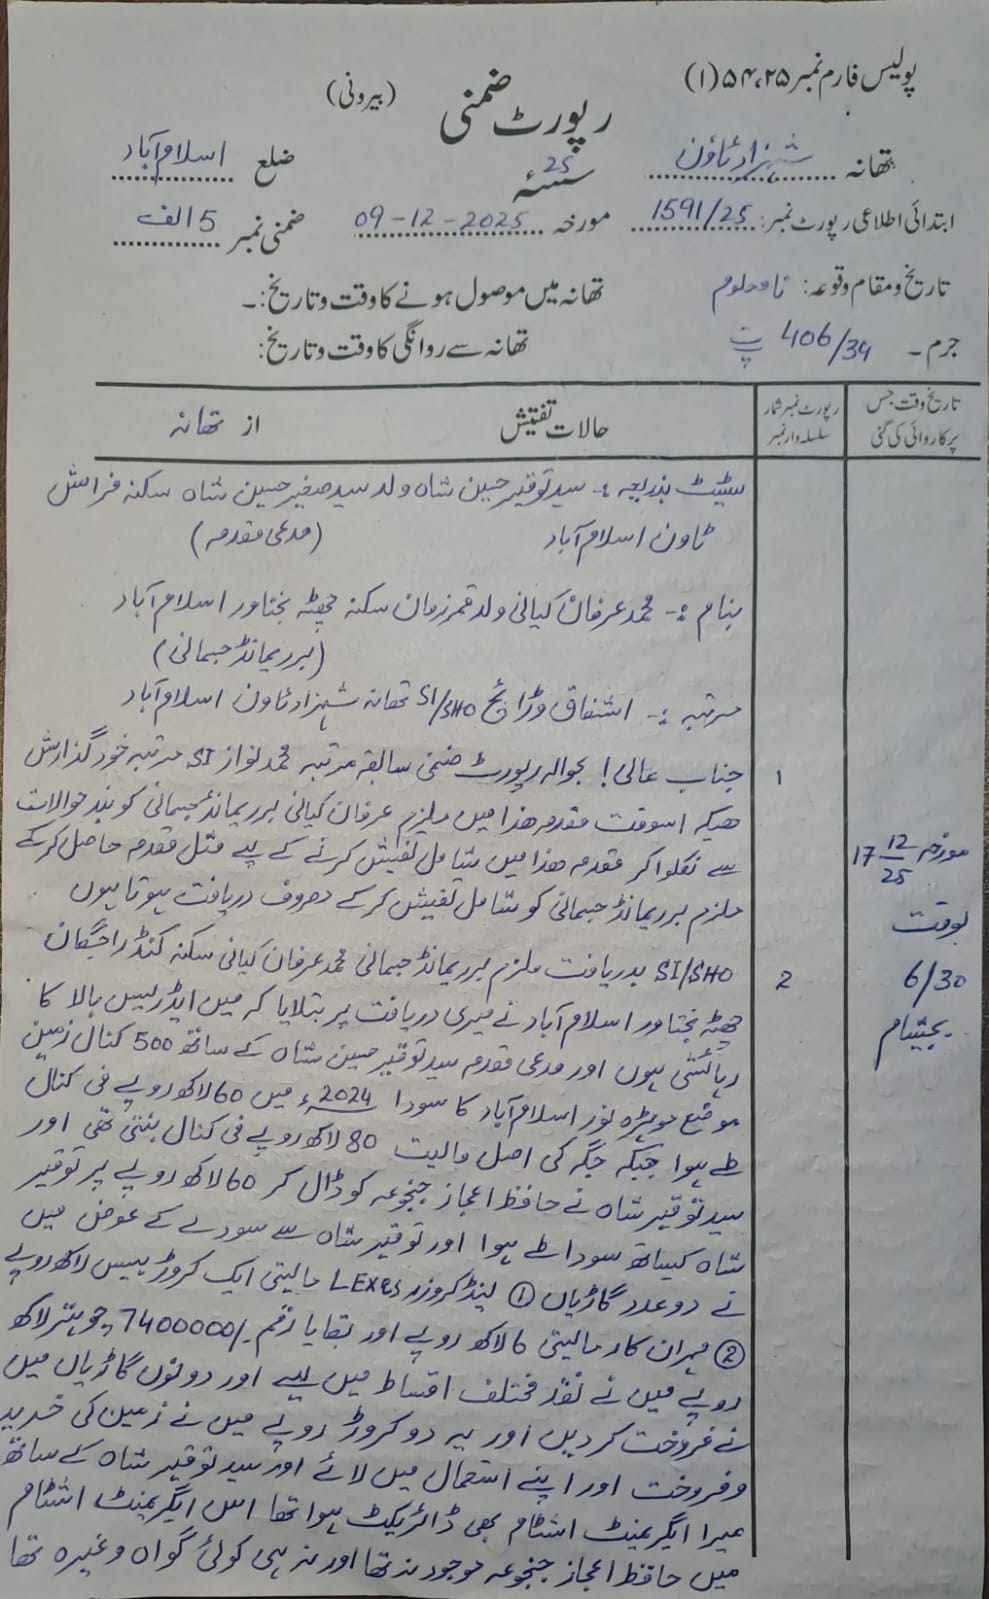 پولیس فارم نمبر ۵۴،۲۵(۱)
رپورٹ ضمنی (بیرونی)
تھانہ شہزاد ٹاؤن 25 سنہ ضلع اسلام آباد
ابتدائی اطلاعی رپورٹ نمبر: 1591/25 مورخہ 09-12-2025 ضمنی نمبر 5 الف
تاریخ و مقام وقوعہ: نامعلوم تھانہ میں موصول ہونے کا وقت و تاریخ:۔
جرم ۔ 406/34 ت پ تھانہ سے روانگی کا وقت و تاریخ:
تاریخ وقت جس پر کاروائی کی گئی
رپورٹ نمبر شمار سلسلہ وار نمبر
حالات تفتیش از تھانہ
سٹیٹ بذریعہ :۔ سید توقیر حسین شاہ ولد سید صغیر حسین شاہ سکنہ فراش
ٹاون اسلام آباد (مدعی مقدمہ)
بنام :۔ محمد عرفان کیانی ولد قمر زمان سکنہ چھٹہ بختاور اسلام آباد
(بر ریمانڈ جسمانی)
مرتبہ :۔ اشفاق وڑائچ SI/SHO تھانہ شہزاد ٹاون اسلام آباد
1 جناب عالی! بحوالہ رپورٹ ضمنی سابقہ مرتبہ محمد نواز SI مرتبہ خود گذارش
ھیکہ اسوقت مقدمہ ھذا میں ملزم عرفان کیانی بر ریمانڈ جسمانی کو بند حوالات
سے نکلوا کر مقدمہ ھذا میں شامل تفتیش کرنے کے لیے مثل مقدمہ حاصل کرکے
ملزم بر ریمانڈ جسمانی کو شامل تفتیش کر کے مصروف دریافت ہوتا ہوں
مورخہ 17 12/25
بوقت
6/30
بجے شام
2 SI/SHO بدریافت ملزم بر ریمانڈ جسمانی محمد عرفان کیانی سکنہ کنڈ راجگان
چھٹہ بختاور اسلام آباد نے میری دریافت پر بتلایا کہ میں ایڈریس بالا کا
رہائشی ہوں اور مدعی مقدمہ سید توقیر حسین شاہ کے ساتھ 500 کنال زمین
موضع موہڑہ نور اسلام آباد کا سودا 2024ء میں 60 لاکھ روپے فی کنال
طے ہوا جبکہ جگہ کی اصل مالیت 80 لاکھ روپے فی کنال بنتی تھی اور
سید توقیر شاہ نے حافظ اعجاز جنجوعہ کو ڈال کر 60 لاکھ روپے پر توقیر
شاہ کیساتھ سودا طے ہوا اور توقیر شاہ سے سودے کے عوض میں
نے دو عدد گاڑیاں ① لینڈ کروزر LExes مالیتی ایک کروڑ بیس لاکھ روپے
② مہران کار مالیتی 6 لاکھ روپے اور بقایا رقم 7400000/- چوہتر لاکھ
روپے میں نے نقد مختلف اقساط میں لیے اور دونوں گاڑیاں میں
نے فروخت کر دیں اور یہ دو کروڑ روپے میں نے زمین کی خرید
و فروخت اور اپنے استعمال میں لائے اور سید توقیر شاہ کے ساتھ
میرا ایگریمنٹ اشٹام بھی ڈائریکٹ ہوا تھا اس ایگریمنٹ اشٹام
میں حافظ اعجاز جنجوعہ موجود نہ تھا اور نہ ہی کوئی گواہ وغیرہ تھا